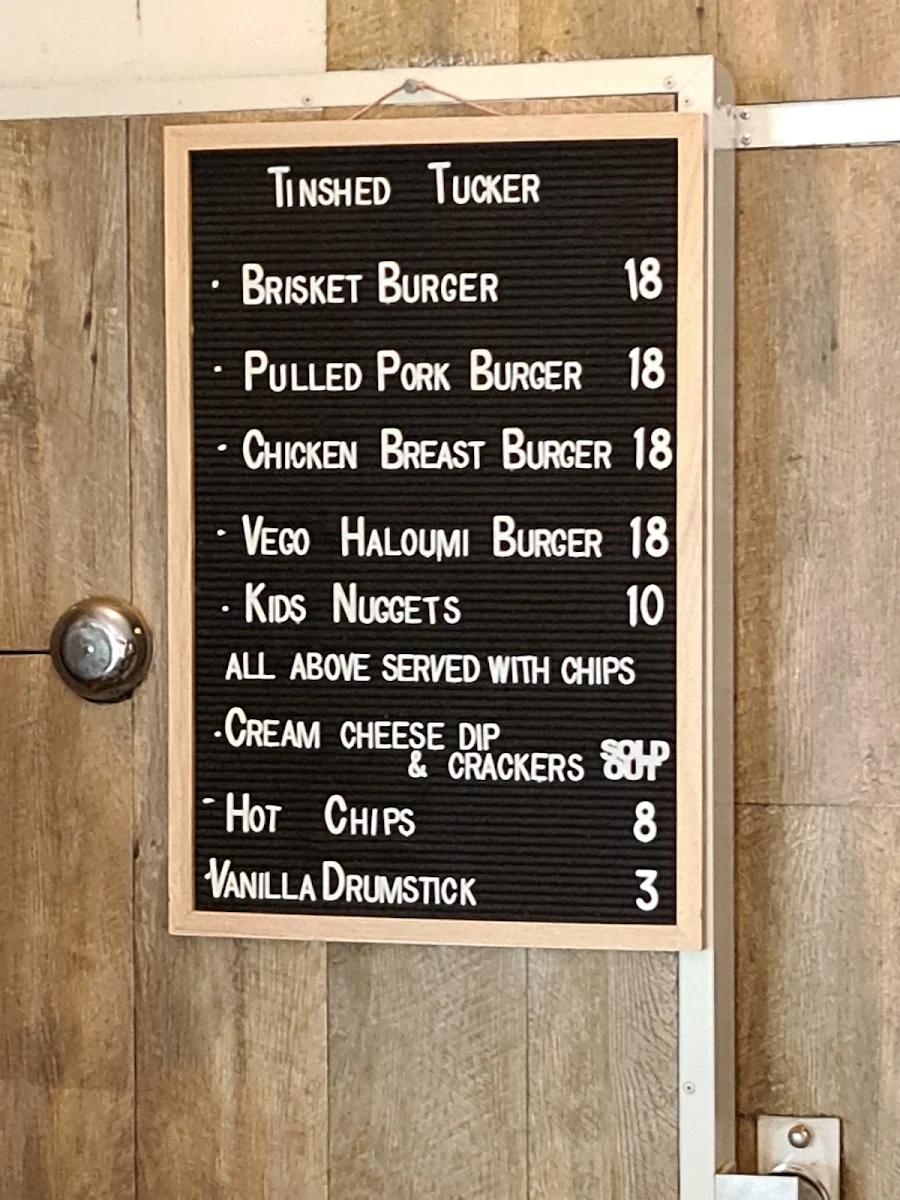 TINSHED TUCKER
· BRISKET BURGER 18
· PULLED PORK BURGER 18
· CHICKEN BREAST BURGER 18
· VEGO HALOUMI BURGER 18
· KIDS NUGGETS 10
ALL ABOVE SERVED WITH CHIPS
· CREAM CHEESE DIP
& CRACKERS SOLD OUT
- HOT CHIPS 8
· VANILLA DRUMSTICK 3